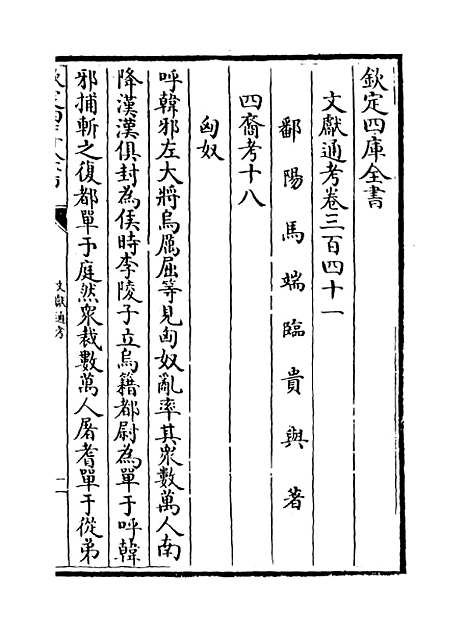 欽定四庫全書
文獻通考卷三百四十一
鄱陽馬端臨貴與著
四裔考十八
匈奴
呼韓邪左大將烏厲屈等見匈奴亂率其衆數萬人南
降漢漢俱封為侯時李陵子立烏籍都尉為單于呼韓
邪捕斬之復都單于庭然衆裁數萬人屠耆單于從弟
文獻通考